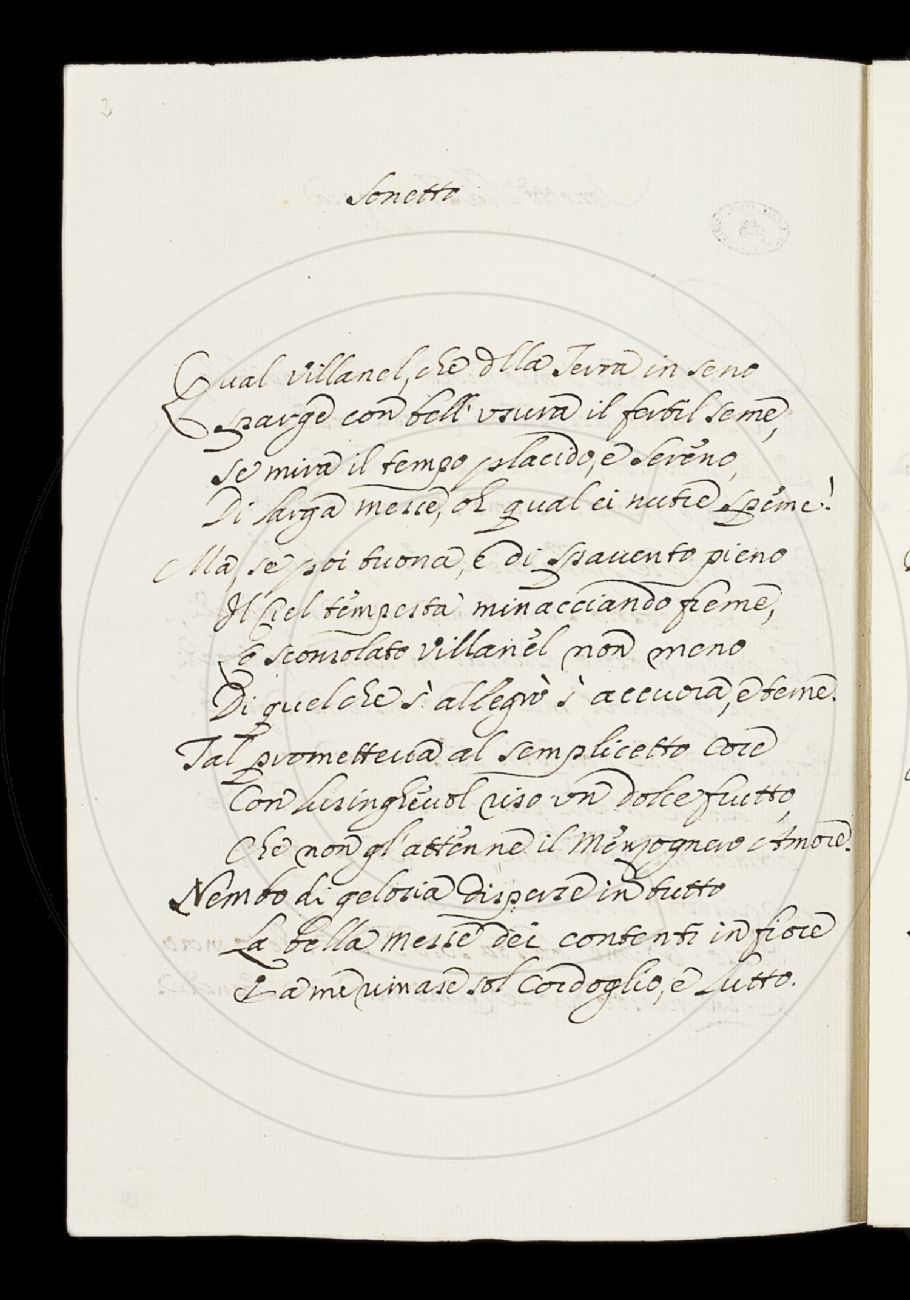 2
Sonetto
Qual Villanel, che dlla Terra in seno
Sparge con bell' vsura il fertil seme,
Se mira il tempo placido, e sereno,
Di larga mercè, oh qual ei nutre speme!
Ma se poi tuona, e di spavento pieno
Il Ciel tempesta minacciando freme,
Lo sconsolato Villanel non meno
Di quel che s' allegrò s' accuora, e teme.
Tal prometteva al semplicetto Core
Con lusinghevol viso vn dolce frutto,
Che non gl' attenne il Menzognero Amore.
Nembo di gelosia disperse in tutto
La bella Messe dei contenti in fiore
E a me rimase sol Cordoglio, e Lutto.